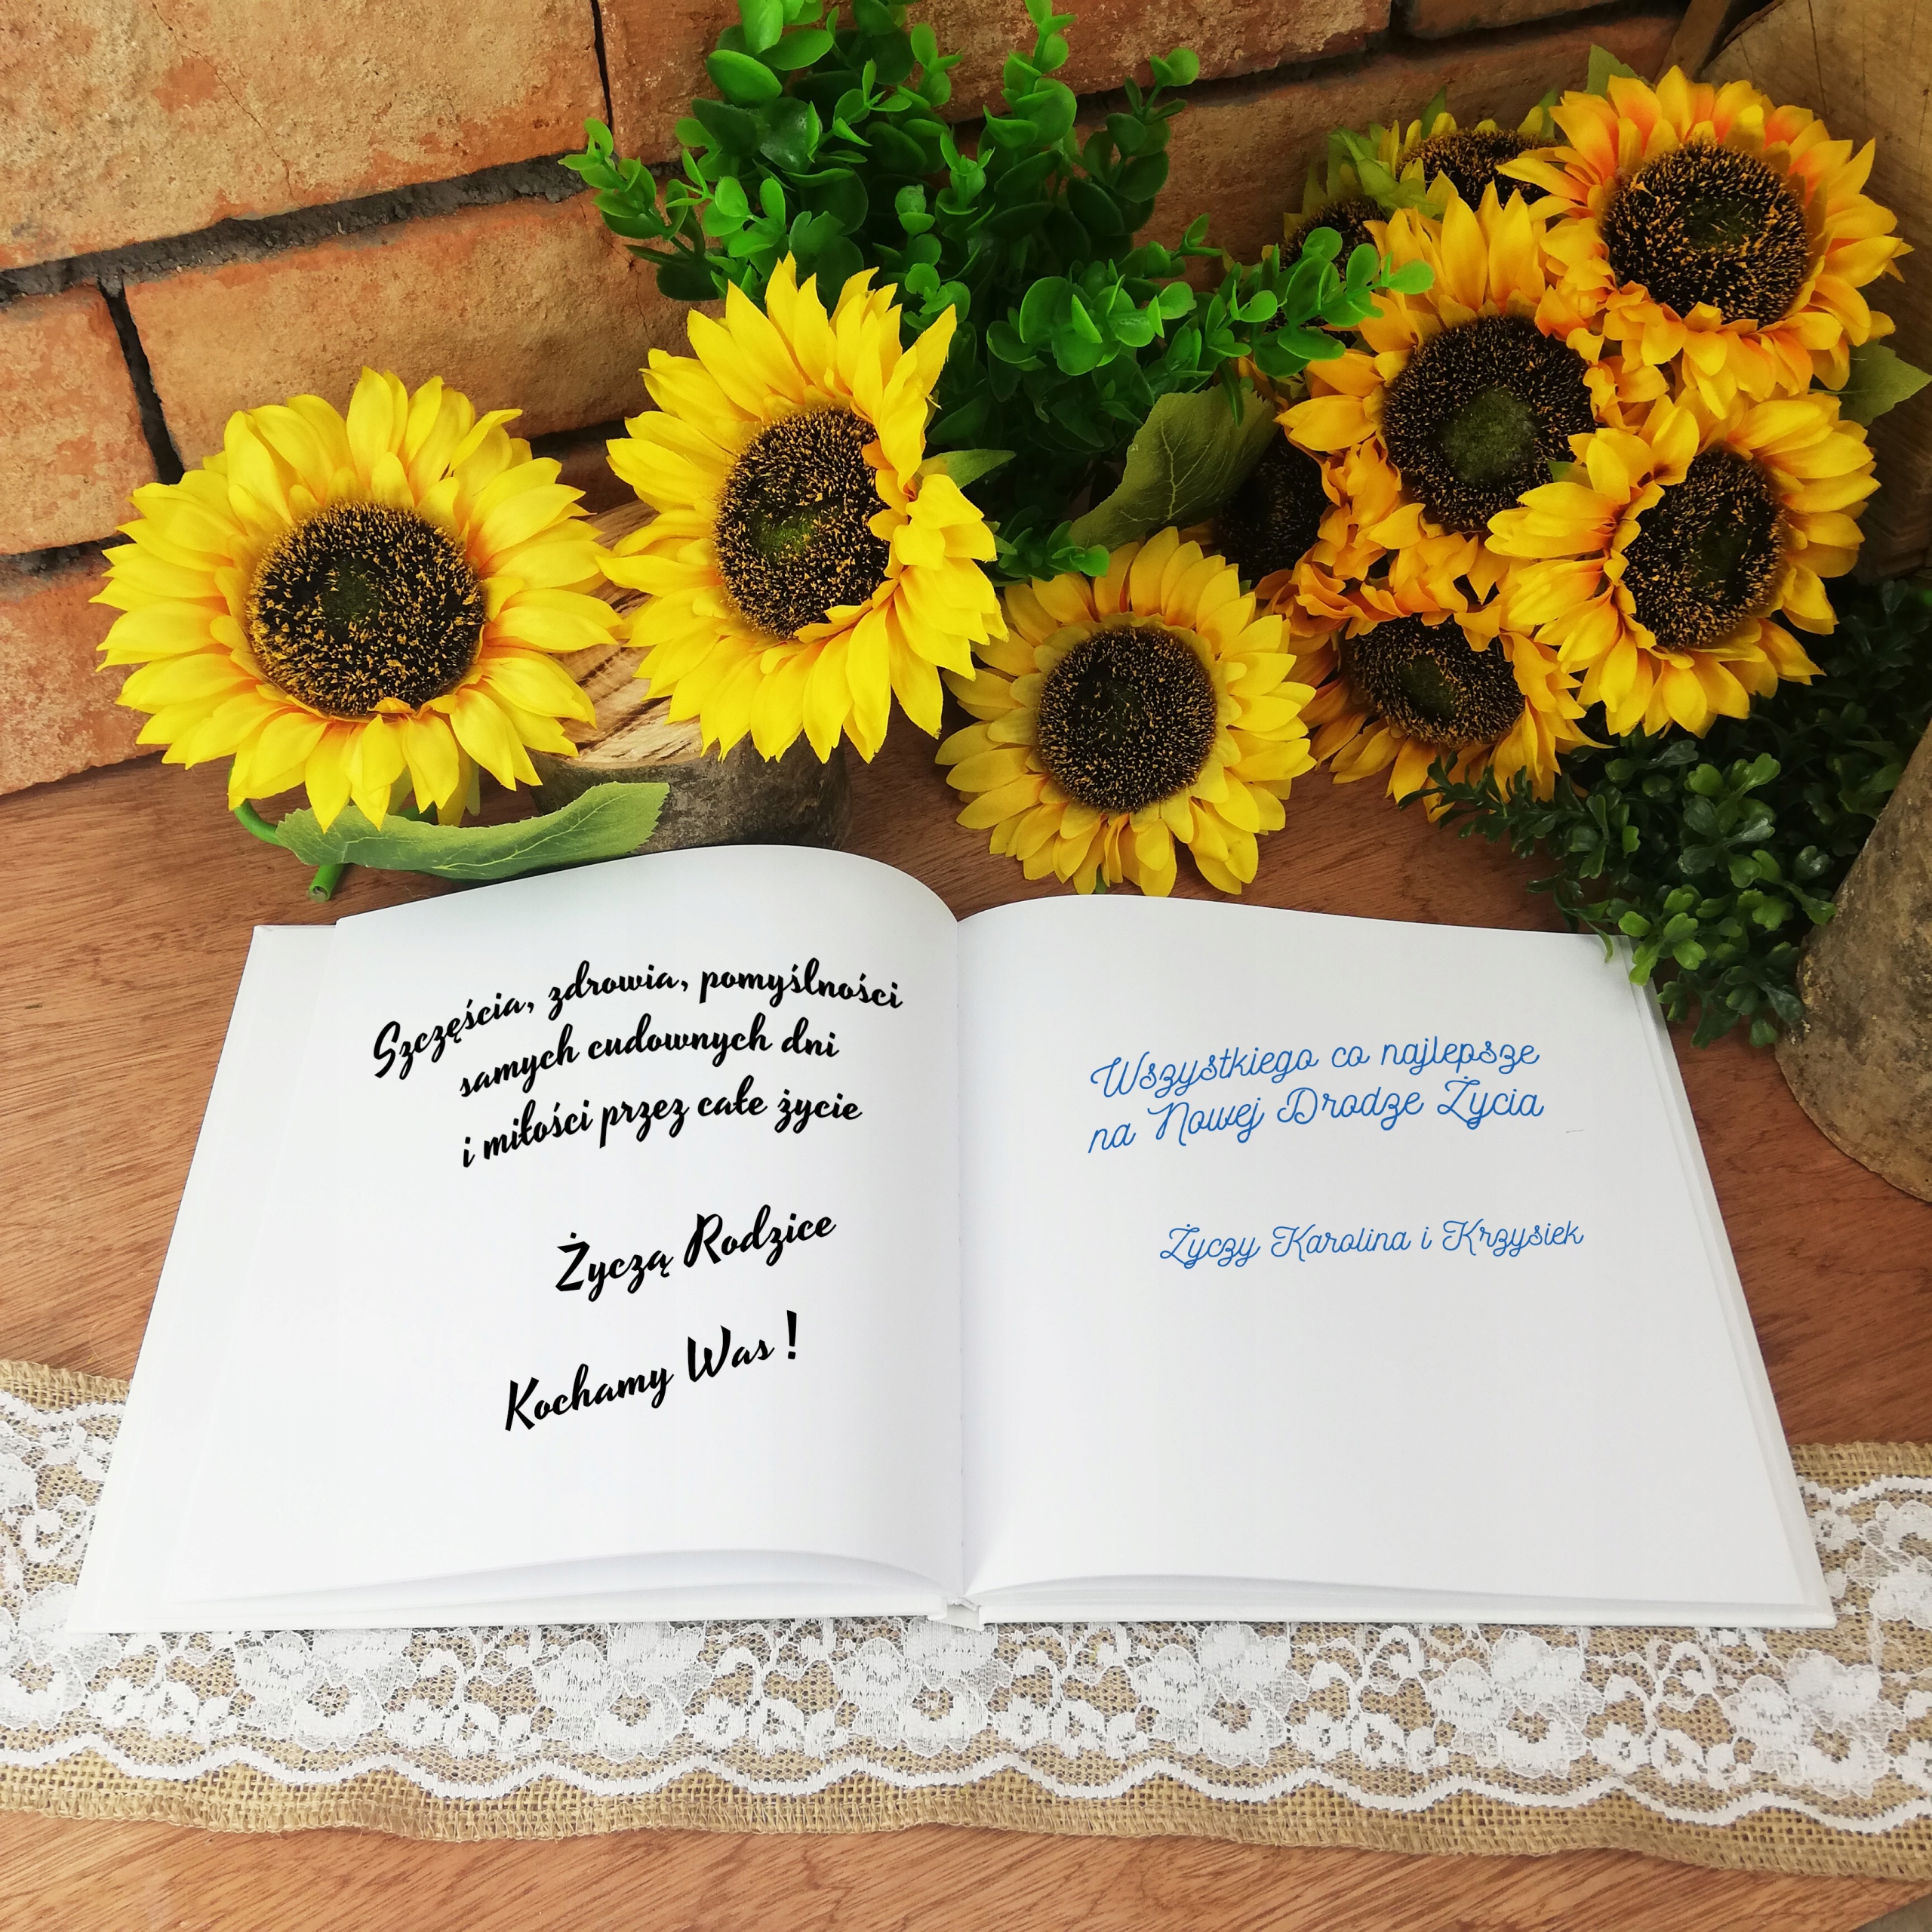 Szczęścia, zdrowia, pomyślności
samych cudownych dni
i miłości przez całe życie
Życzą Rodzice
Kochamy Was !
Wszystkiego co najlepsze
na Nowej Drodze Życia
Życzy Karolina i Krzysiek